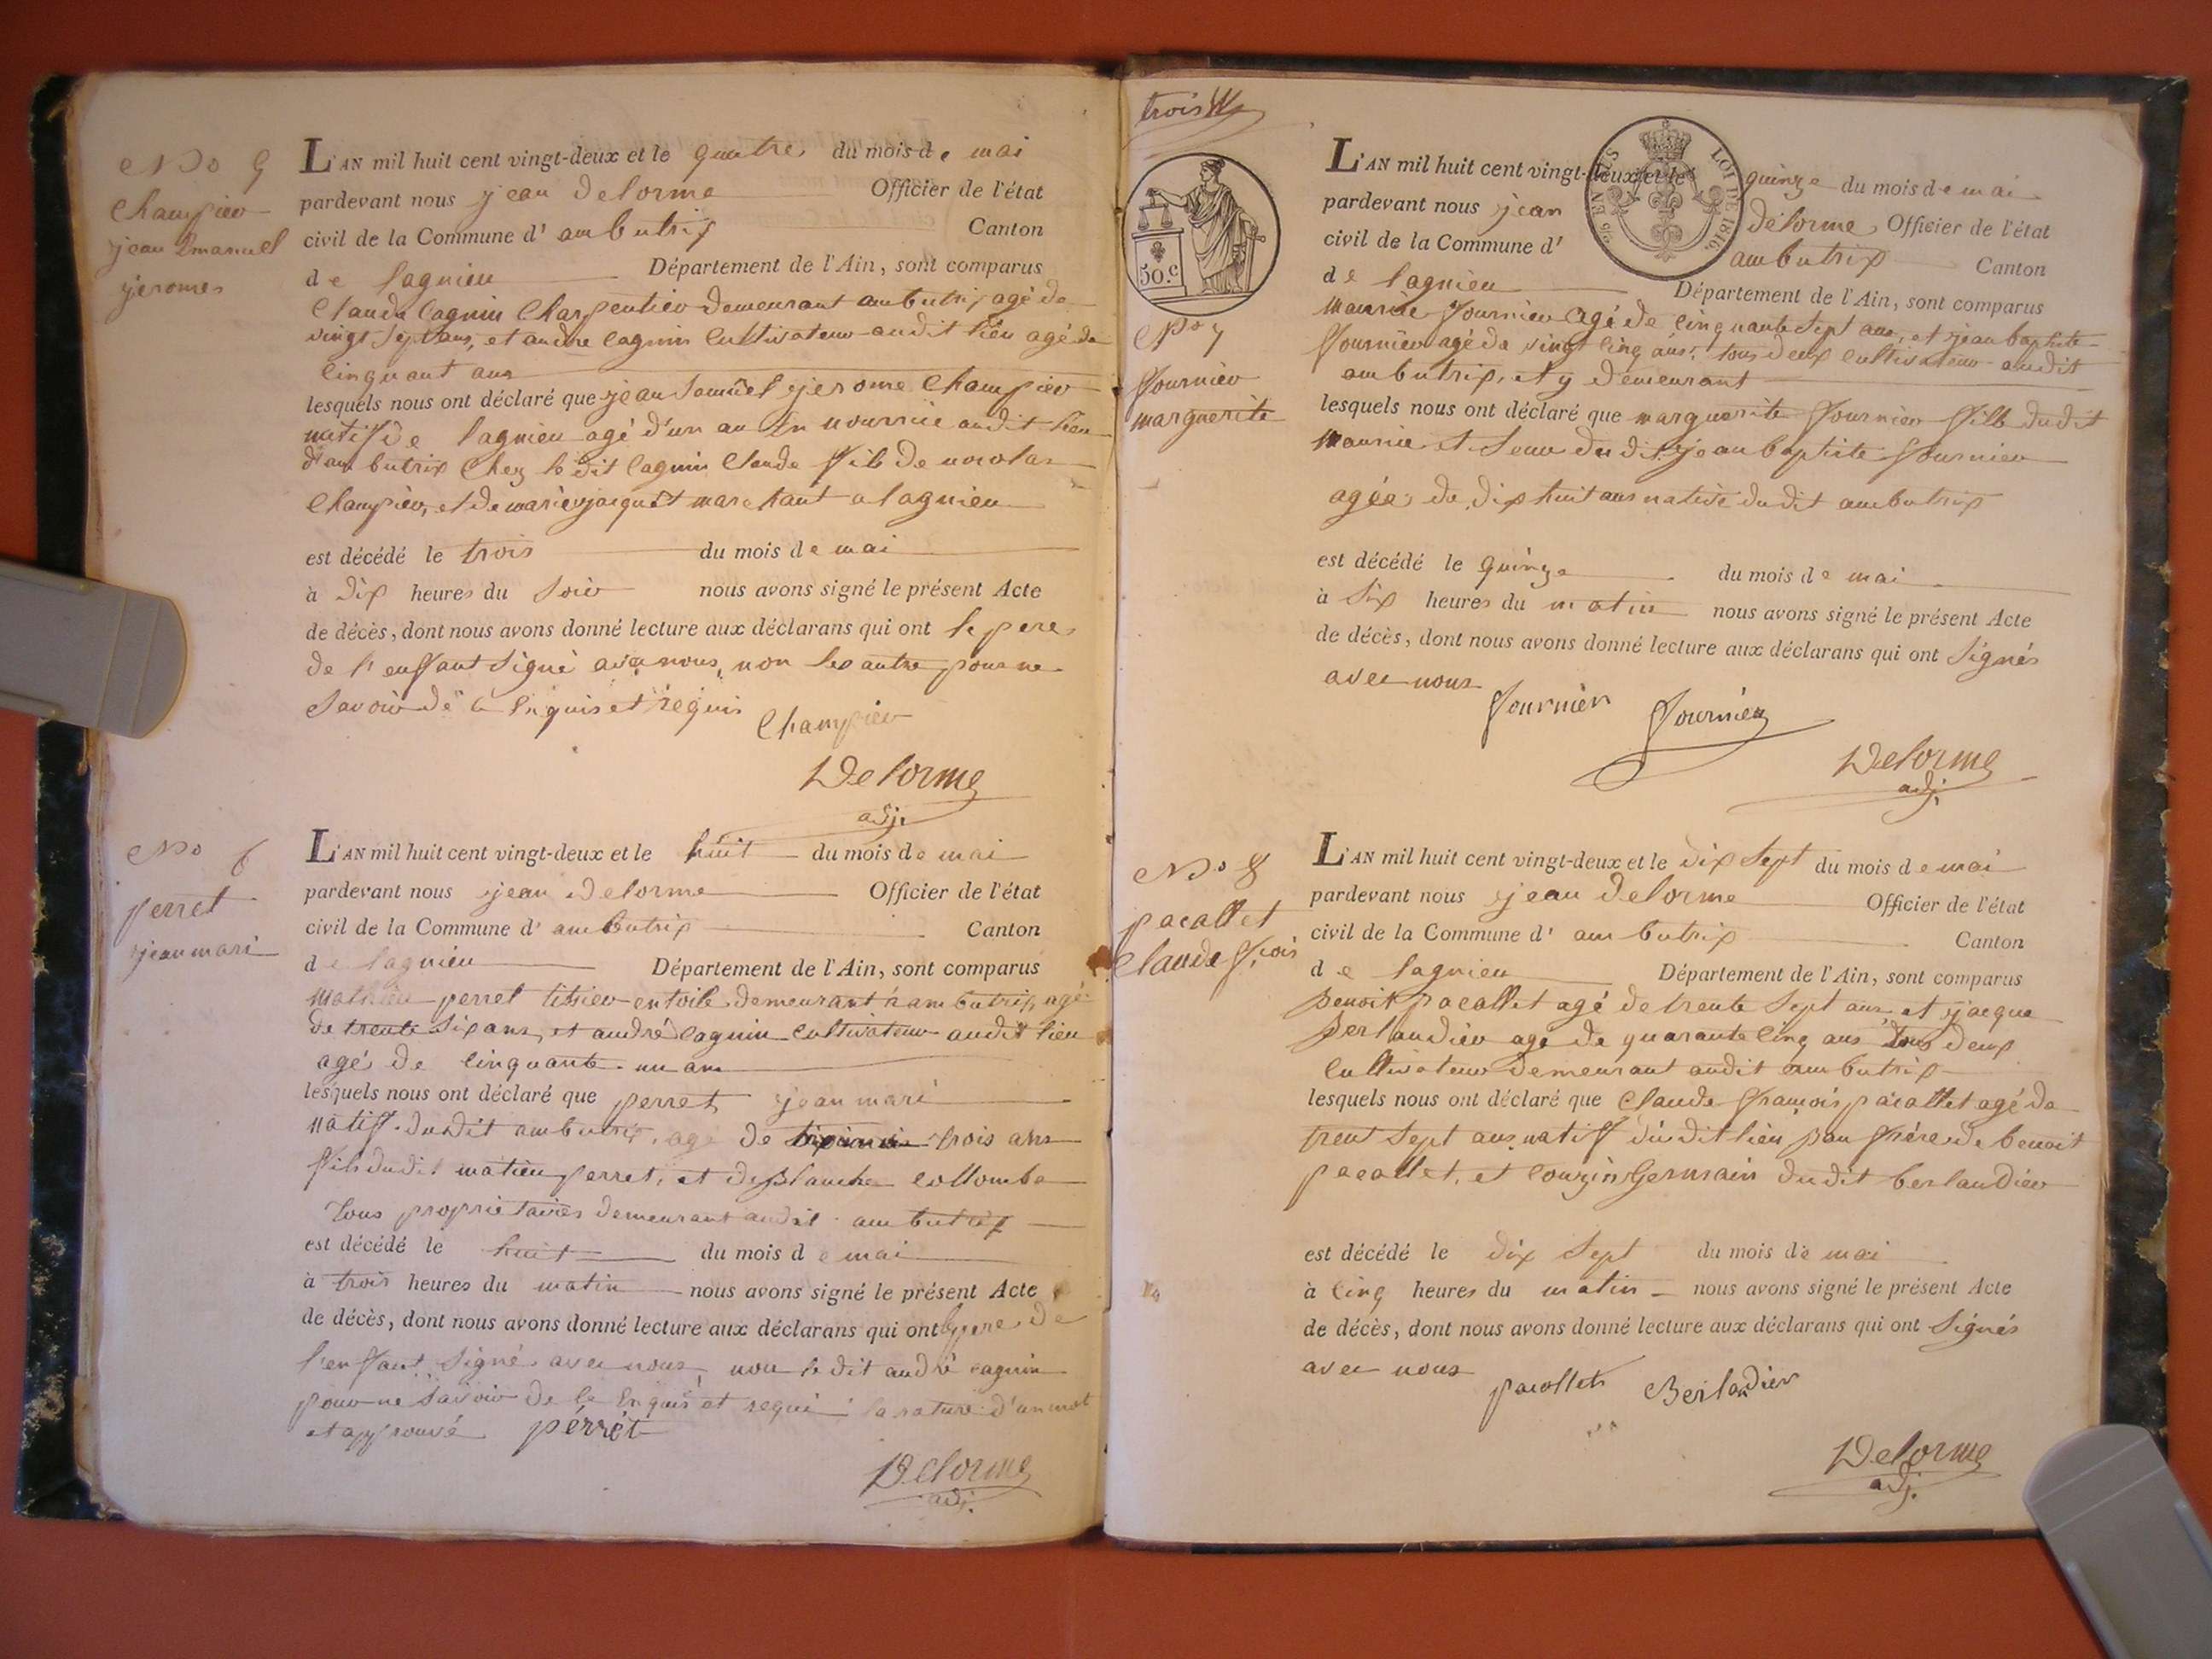 No 5
Champier
jean Emanuel
jerome
L'AN mil huit cent vingt-deux et le quatre du mois de mai
pardevant nous jean delorme Officier de l'état
civil de la Commune d' ambutrix Canton
de lagnieu Département de l'Ain, sont comparus
Claude Cagnin Charpentier demeurant ambutrix agé de
vingt Sept ans, et andre cagnin Cultivateur audit lieu agé de
Cinquant ans
lesquels nous ont déclaré que jean Samuel jerome Champier
natif de lagnieu agé d'un an En nourrice audit lieu
d'ambutrix Chez le dit Cagnin Claude fils de nicolas
Champier, et de marie jacquet marchant a lagnieu
est décédé le trois du mois de mai
à dix heures du Soir nous avons signé le présent Acte
de décès, dont nous avons donné lecture aux déclarans qui ont le pere
de l'enffant Signé avec nous, non les autre pour ne
Savoir de ce Enquis et réquis Champier
Delorme
adj.
No 6
perret
jean mari
L'AN mil huit cent vingt-deux et le huit du mois de mai
pardevant nous jean delorme Officier de l'état
civil de la Commune d' ambutrix Canton
de lagnieu Département de l'Ain, sont comparus
Mathieu perret titsier en toile demeurant à ambutrix agé
de trente Six ans, et andré cagnin cultivateur audit lieu
agé de cinquante un ans
lesquels nous ont déclaré que perret jean mari
natiff dudit ambutrix, agé de trois ans
fils dudit matieu perret, et de Blanche collombe
Tous proprietaires demeurant audit ambutrix
est décédé le huit du mois de mai
à trois heures du matin nous avons signé le présent Acte
de décès, dont nous avons donné lecture aux déclarans qui ont le pere de
l'enffant Signé avec nous, non le dit andré cagnin
pour ne Savoir de ce Enquis et requi la rature d'un mot
et approuvé pérrét
Delorme
adj.
trois
50.c
No 7
fournier
marguerite
EN SUS
LOI DE 1816.
L'AN mil huit cent vingt-deux et le quinze du mois de mai
pardevant nous jean delorme Officier de l'état
civil de la Commune d' ambutrix Canton
de lagnieu Département de l'Ain, sont comparus
Maurice fournier agé de Cinquante Sept ans, et jean baptiste
fournier agé de vingt Cinq ans, tous deux cultivateur audit
ambutrix, et y demeurant
lesquels nous ont déclaré que marguerite fournier fille dudit
Maurice et Seur du dit jean baptiste fournier
agée de dix huit ans native dudit ambutrix
est décédé le quinze du mois de mai
à Six heures du matin nous avons signé le présent Acte
de décès, dont nous avons donné lecture aux déclarans qui ont Signés
avec nous
fournier fournier
Delorme
adj.
No 8
pacallet
Claude f.cois
L'AN mil huit cent vingt-deux et le dix Sept du mois de mai
pardevant nous jean delorme Officier de l'état
civil de la Commune d' ambutrix Canton
de lagnieu Département de l'Ain, sont comparus
benoit pacallet agé de trente Sept ans, et jacque
berlandier agé de quarante Cinq ans Tous deux
Cultivateur demeurant audit ambutrix
lesquels nous ont déclaré que Claude françois pacallet agé de
trent Sept ans natif dudit lieu frére de benoit
pacallet, et Couzin Germain dudit berlandier
est décédé le dix Sept du mois de mai
à Cinq heures du matin nous avons signé le présent Acte
de décès, dont nous avons donné lecture aux déclarans qui ont Signés
avec nous
pacollet Berlandier
Delorme
adj.